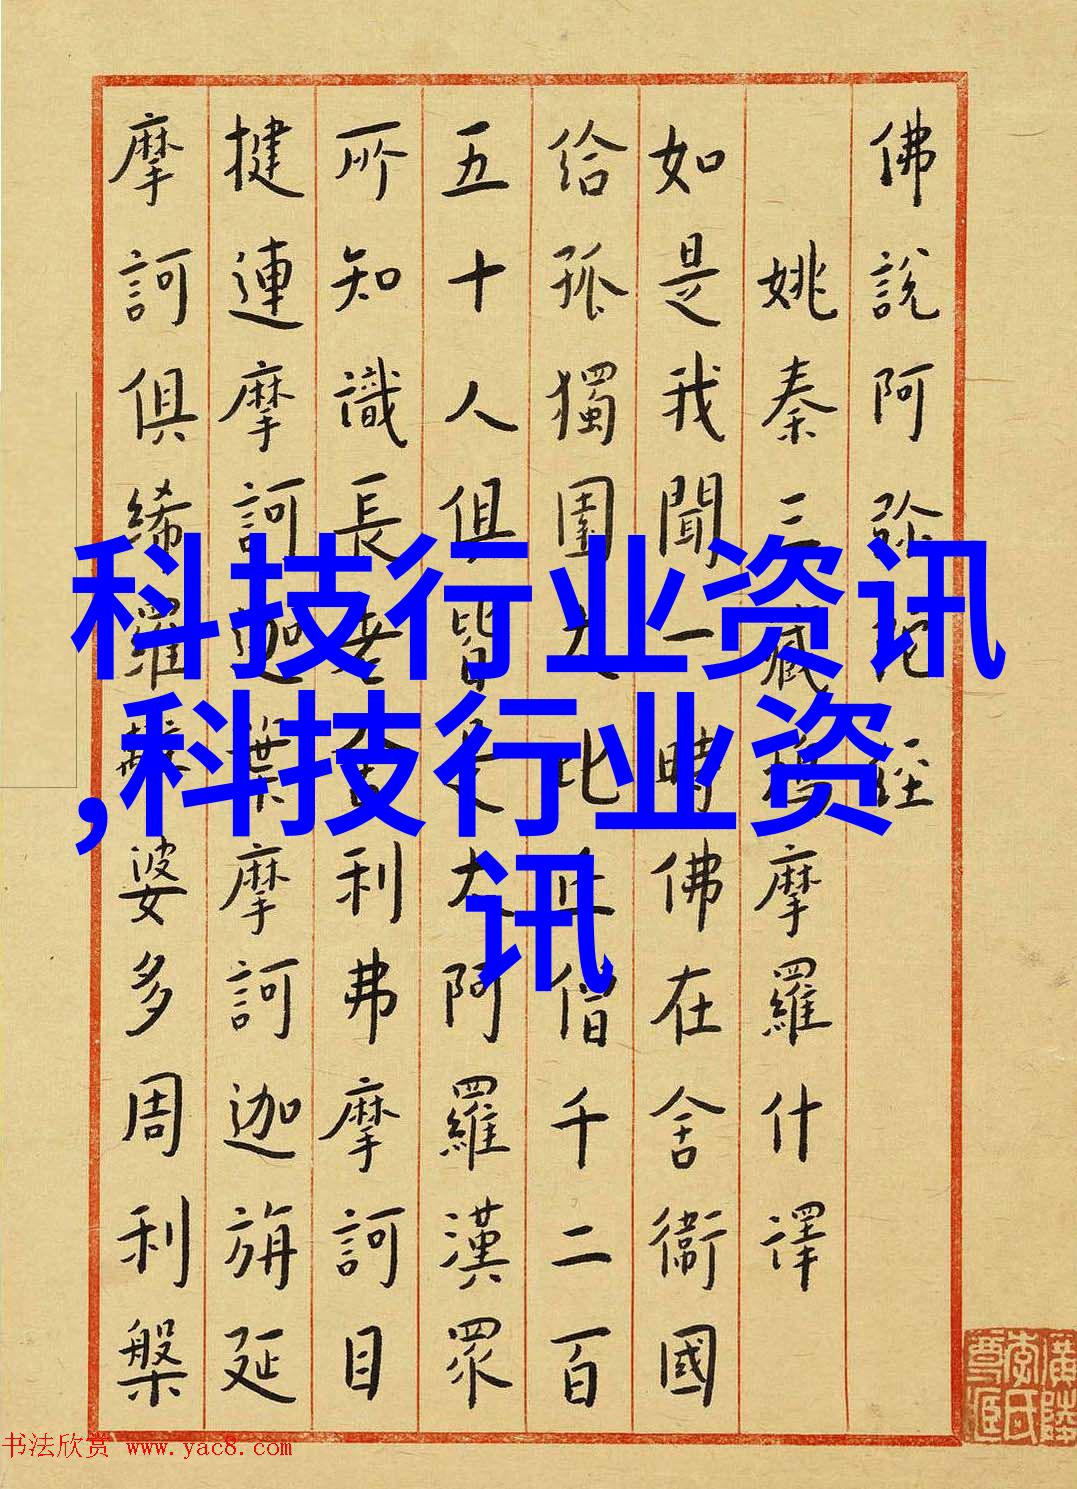 佛說阿弥陀經
姚秦三藏鳩摩羅什譯
如是我聞一時佛在舍衛國
給孤獨園大比丘僧千二百
五十人俱皆是大阿羅漢眾
所知識長老舍利弗摩訶目
揵連摩訶迦葉摩訶迦旃延
摩訶俱絺羅離婆多周利槃
科技行业资讯
,科技行业资
讯
書法欣赏 www.yac8.com